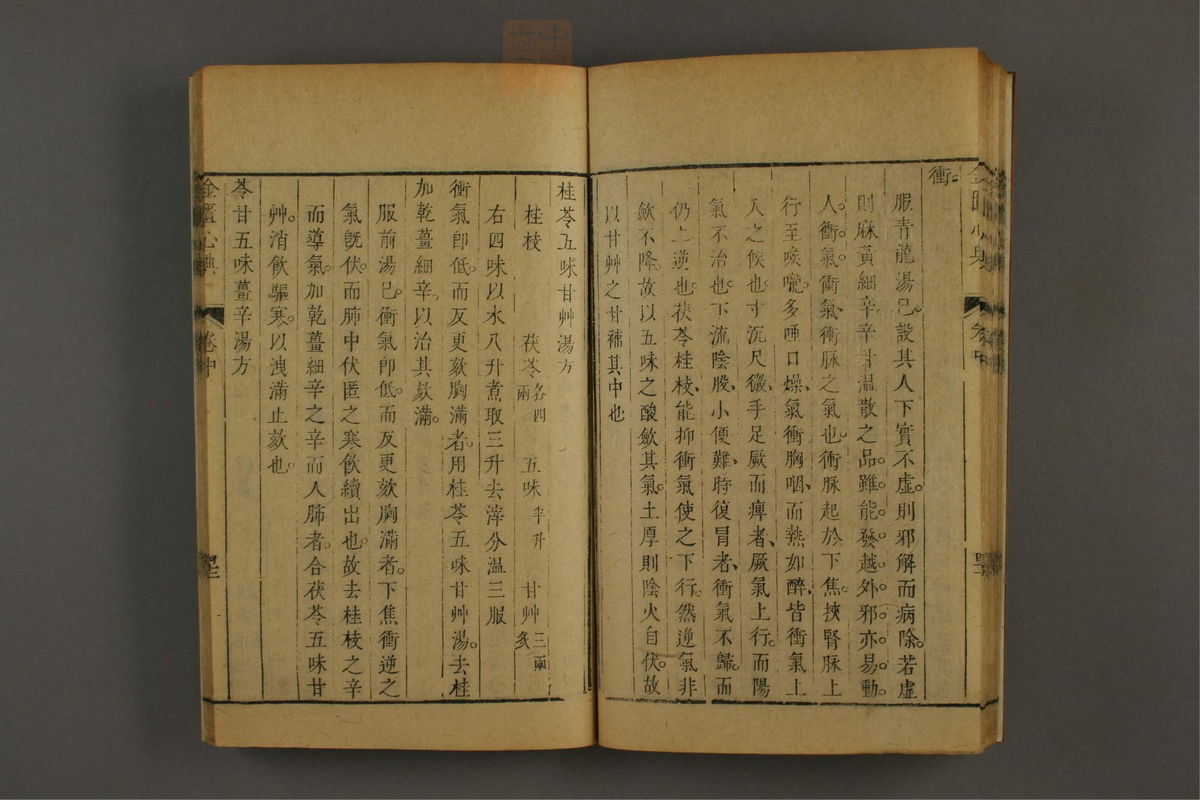 衝。
服青龍湯已。設其人下實不虛。則邪解而病除。若虛
則麻黃細辛。辛甘溫散之品。雖能發越外邪。亦易動
人。衝氣。衝氣、衝脉之氣也。衝脉起於下焦。挾腎脉上
行至喉嚨。多唾口燥、氣衝胸咽、面熱如醉、皆衝氣上
入之候也。寸沉尺微、手足厥而痺者、厥氣上行。而陽
氣不治也。下流陰股、小便難、時復冒者、衝氣不歸。而
仍上逆也。茯苓桂枝、能抑衝氣使之下行。然逆氣非
斂不降。故以五味之酸斂其氣。土厚則陰火自伏。故
以甘艸之甘補其中也
桂苓五味甘艸湯方
桂枝 茯苓各四兩 五味半升 甘艸三兩炙
右四味以水八升煮取三升去滓分溫三服
衝氣卽低。而反更欬胸滿者。用桂苓五味甘艸湯。去桂
加乾薑細辛。以治其欬滿。
服前湯已。衝氣卽低。而反更欬胸滿者。下焦衝逆之
氣旣伏。而肺中伏匿之寒飲續出也。故去桂枝之辛
而導氣。加乾薑細辛之辛而入肺者。合茯苓五味甘
艸。消飲驅寒。以洩滿止欬也。
苓甘五味薑辛湯方
金匱心典 卷中